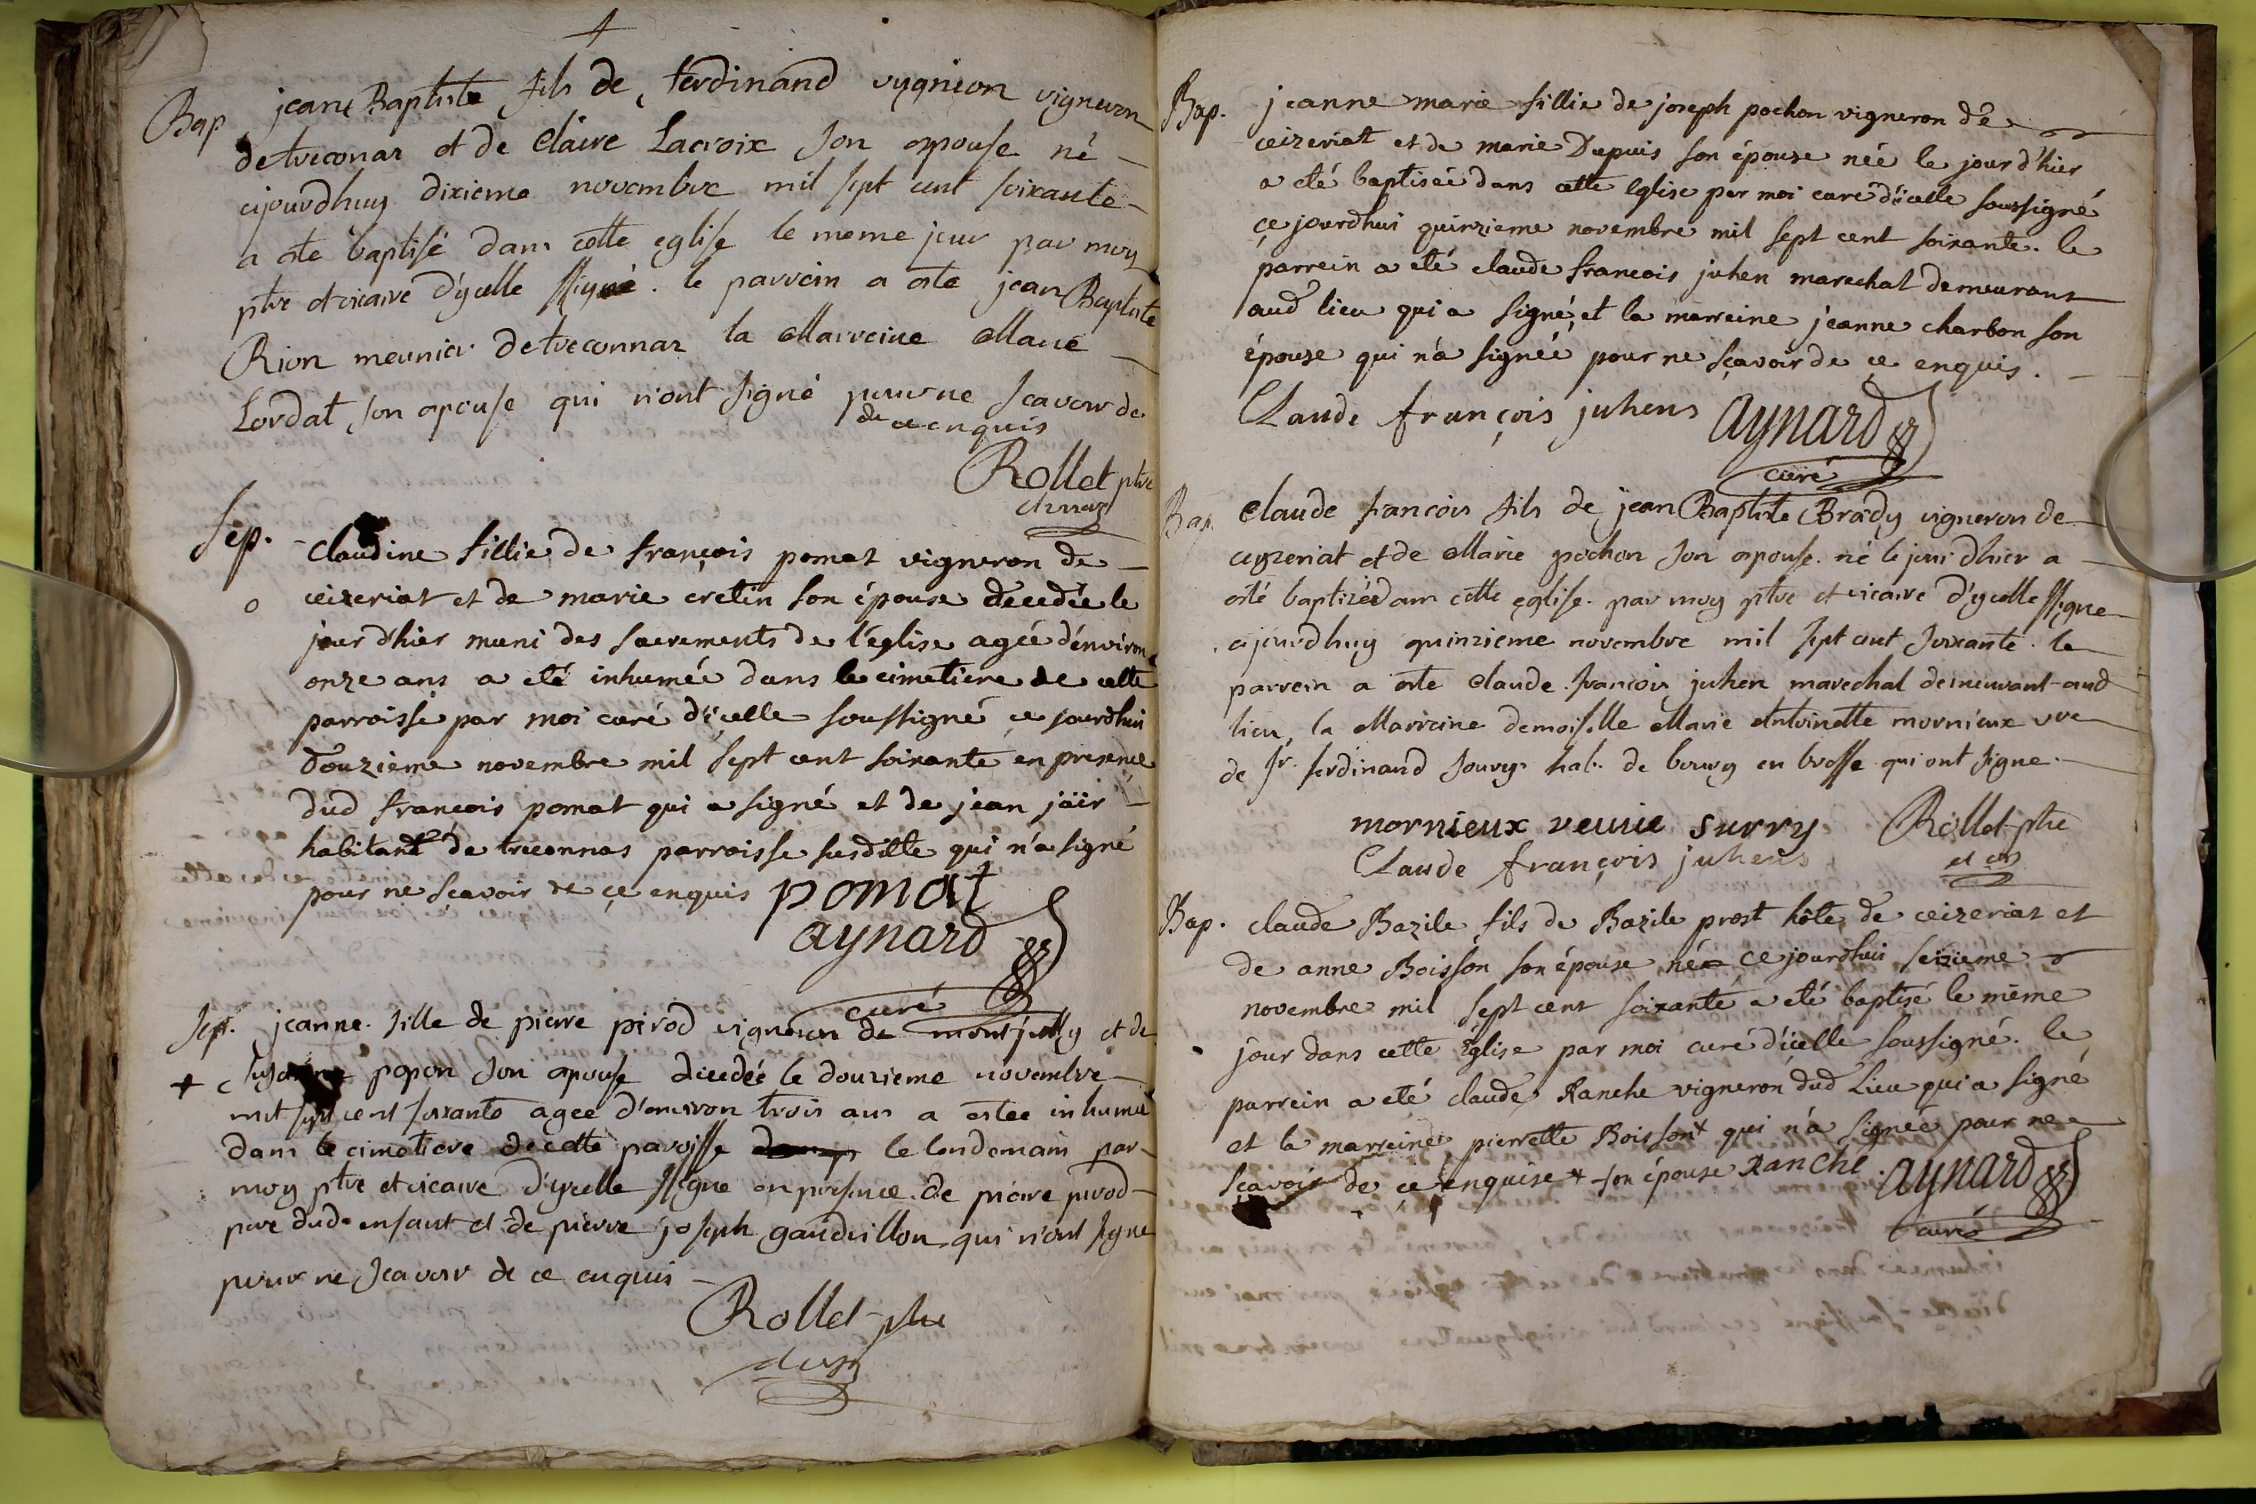 Bap jean Baptiste fils de ferdinand vygnion vigneron
de treconas et de Claire Lacroix son epouse né
cejourdhuy dixieme novembre mil sept cent soixante
a ete baptisé dans cette eglise le meme jour par moy
ptre et vicaire d'ycelle ssigné. le parrein a ete jean Baptiste
Rion meunier de treconnaz la Marreine Marie
Lordat son epouse qui n'ont signé pour ne scavoir de
de ce enquis
Rollet ptre
et vicaire
Sep. Claudine fillie de françois pomat vigneron de
ceizeriat et de marie cretin son épouse decedée le
jour d'hier muni des sacrements de l'église agéé d'environ
onze ans a été inhumée dans le cimetiere de cette
parroisse par moi curé d'icelle soussigné ce jourdhui
douzieme novembre mil sept cent soixante en presence
dud françois pomat qui a signé et de jean jäir
habitant de treconnas parroisse susditte qui n'a signé
pour ne sçavoir de çe enquis pomat
aynard
curé
Sep. jeanne fille de pierre pirod vigneron de montjully et de
popon son epouse decedée le douzieme novembre
mil sept cent soixante agee d'environ trois ans a estee inhumé
dans le cimetiere de cette paroisse le lendemain par
moy ptre et vicaire d'ycelle ssigne en presence de pierre pirod
pere dud. enfant et de pierre joseph gauduillon qui n'ont signe
pour ne scavoir de ce enquis
Rollet ptre
et vicaire
Bap. jeanne marie fillie de joseph pochon vigneron de
ceizeriat et de marie Dupuis son épouse néé le jour d'hier
a eté baptiséé dans cette eglise par moi curé d'icelle soussigné
çe jourdhui quinzieme novembre mil sept cent soixante. le
parrein a eté claude francois juhen marechal demeurans
aud lieu qui a signé et la marreine jeanne charbon son
épouse qui n'a signéé pour ne sçavoir de çe enquis.
Claude françois juhens aynard
curé
Bap. Claude francois fils de jean Baptiste Brady vigneron de
ceyzeriat et de Marie pochon son epouse. né le jour d'hier a
été baptizé dans cette eglise par moy ptre et vicaire d'ycelle ssigne
cejourdhuy quinzieme novembre mil sept cent soixante. le
parrein a ete Claude francois juhen marechal demeurant aud
lieu, la Marreine demoiselle Marie Antoinette mornieux vve
de Sr. ferdinand soury hab. de bourg en bresse qui ont signe.
mornieux veuve surry Rollet ptre
Claude françois juhens et vic
Bap. claude Bazile fils de Bazile prost hôte de ceizeriat et
de anne Boisson son épouse né ce jourdhui seizieme
novembre mil sept cent soixante a eté baptisé le même
jour dans cette église par moi curé d'icelle soussigné. le
parrein a eté claude Ranche vigneron dud Lieu qui a signé
et la marreine pierrette Boisson+ qui n'a signéé pour ne
sçavoir de çe enquise + son épouse Ranche. aynard
curé